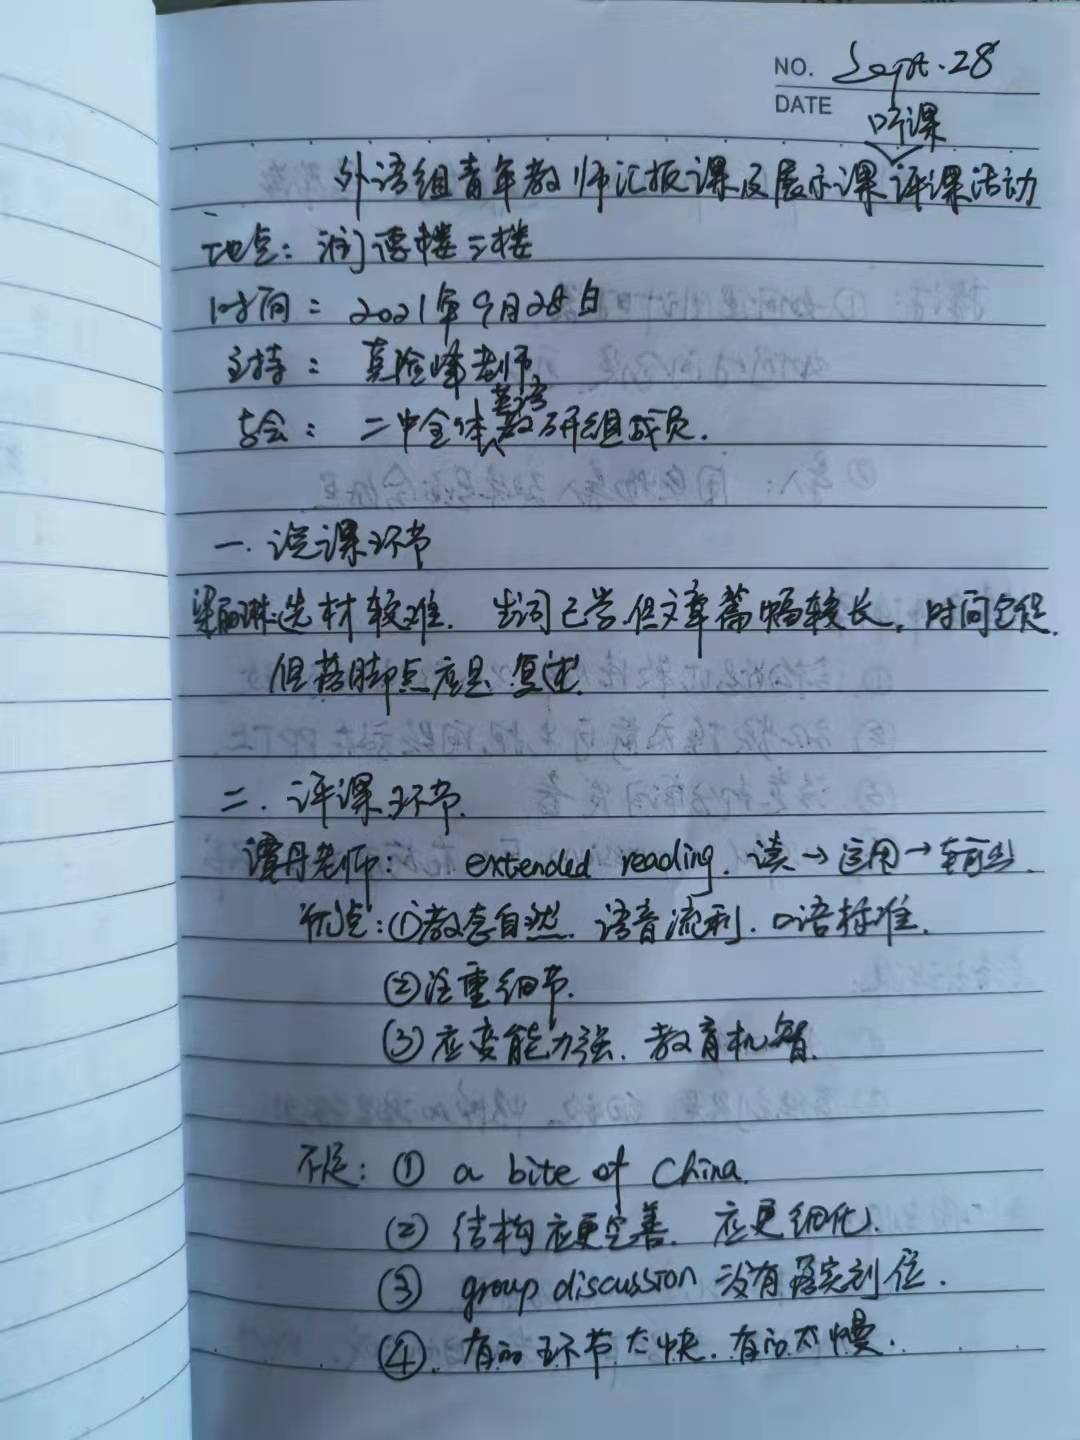 NO. Sept. 28
DATE
听课
外语组青年教师汇报课及展示课评课活动
地点：润德楼三楼
时间：2021年9月28日
主持：老师
英语
与会：二中全体教研组成员.
一. 说课环节
梁丽琳:选材较难. 生词已学.但文章篇幅较长, 时间仓促.
但落脚点应是复述.
二. 评课环节.
谭丹老师: extended reading. 读→运用→输出.
优点:①教态自然. 语音流利. 口语标准.
②注重细节.
③应变能力强. 教育机智.
不足: ① a bite of China.
② 结构应更完善. 应更细化.
③ group discussion 没有落实到位.
④. 有的环节太快. 有的太慢.